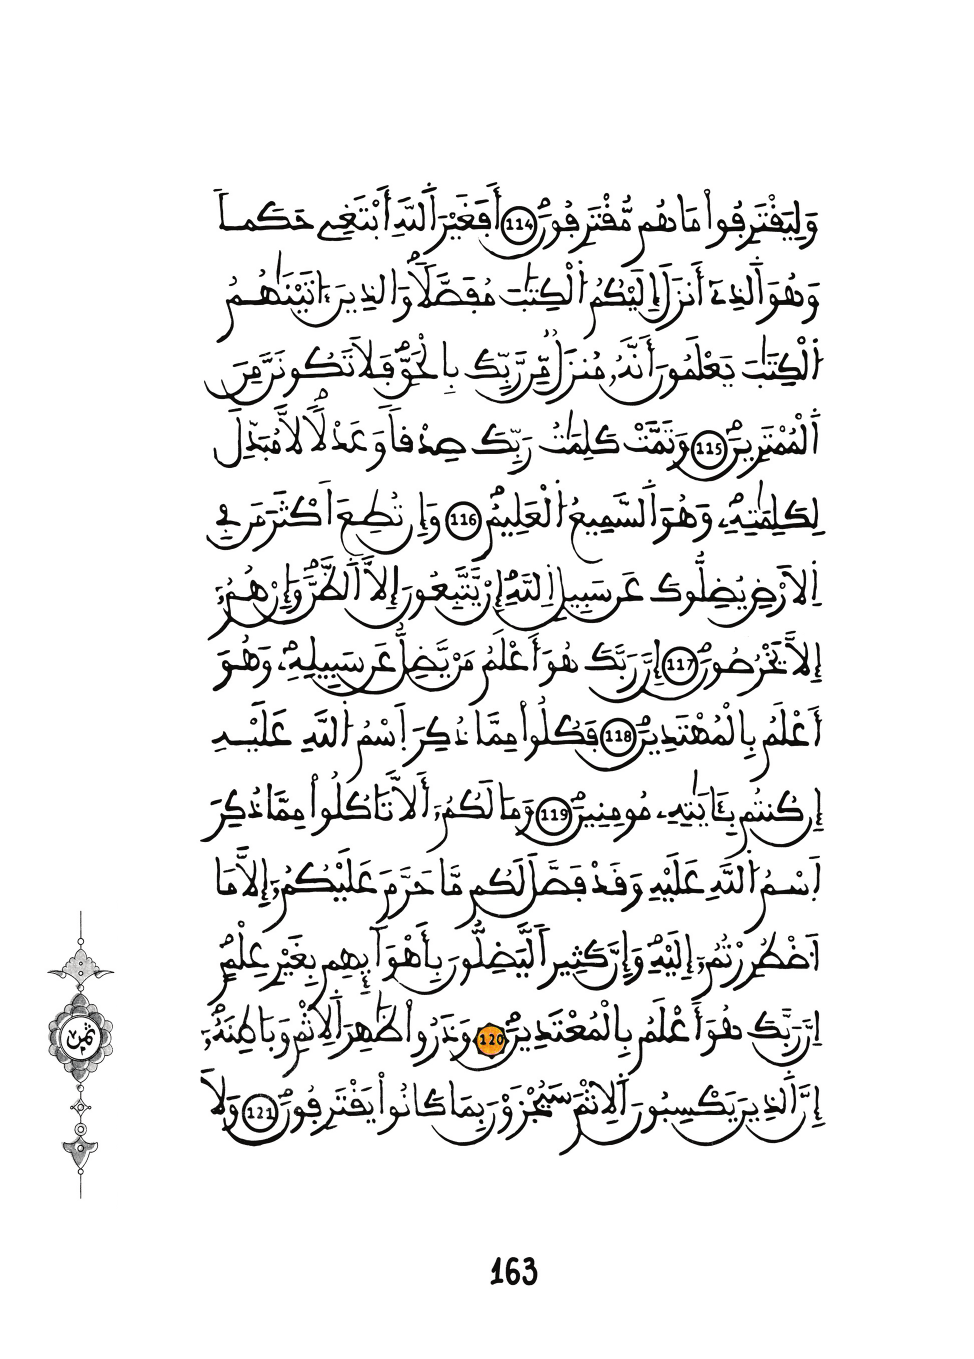 وَلِيَقْتَرِفُواْ مَا هُم مُّقْتَرِفُونَۖ 114 أَفَغَيْرَ اَ۬للَّهِ أَبْتَغِے حَكَماٗ
وَهُوَ اَ۬لذِےٓ أَنزَلَ إِلَيْكُمُ اُ۬لْكِتَٰبَ مُفَصَّلاٗۖ وَالذِينَ ءَاتَيْنَٰهُمُ
اُ۬لْكِتَٰبَ يَعْلَمُونَ أَنَّهُۥ مُنزَلٞ مِّن رَّبِّكَ بِالْحَقِّۖ فَلَا تَكُونَنَّ مِنَ
اَ۬لْمُمْتَرِينَۖ 115 وَتَمَّتْ كَلِمَٰتُ رَبِّكَ صِدْقاٗ وَعَدْلاٗۖ لَّا مُبَدِّلَ
لِكَلِمَٰتِهِۦۖ وَهُوَ اَ۬لسَّمِيعُ اُ۬لْعَلِيمُۖ 116 وَإِن تُطِعَ اَكْثَرَ مَن فِے
اِ۬لَارْضِ يُضِلُّوكَ عَن سَبِيلِ اِ۬للَّهِۖ إِنْ يَّتَّبِعُونَ إِلَّا اَ۬لظَّنَّۖ وَإِنْ هُمُۥٓ
إِلَّا يَخْرُصُونَۖ 117 إِنَّ رَبَّكَ هُوَ أَعْلَمُ مَنْ يَّضِلُّ عَن سَبِيلِهِۦۖ وَهُوَ
أَعْلَمُ بِالْمُهْتَدِينَۖ 118 فَكُلُواْ مِمَّا ذُكِرَ اَ۪سْمُ اُ۬للَّهِ عَلَيْهِ
إِن كُنتُم بِـَٔايَٰتِهِۦ مُومِنِينَۖ 119 وَمَا لَكُمُۥٓ أَلَّا تَاكُلُواْ مِمَّا ذُكِرَ
اَ۪سْمُ اُ۬للَّهِ عَلَيْهِ وَقَدْ فَصَّلَ لَكُم مَّا حَرَّمَ عَلَيْكُمُۥٓ إِلَّا مَا
اَ۟ضْطُرِرْتُمُۥٓ إِلَيْهِۖ وَإِنَّ كَثِيراٗ لَّيَضِلُّونَ بِأَهْوَآئِهِم بِغَيْرِ عِلْمٍۖ
اِنَّ رَبَّكَ هُوَ أَعْلَمُ بِالْمُعْتَدِينَۖ 120 وَذَرُواْ ظَٰهِرَ اَ۬لِاثْمِ وَبَاطِنَهُۥٓۖ
إِنَّ اَ۬لذِينَ يَكْسِبُونَ اَ۬لِاثْمَ سَيُجْزَوْنَ بِمَا كَانُواْ يَقْتَرِفُونَۖ 121 وَلَا
ثمن
163